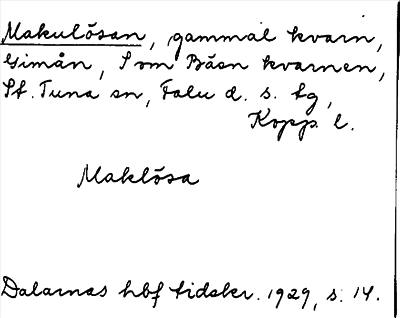 Makulösan, gammal kvarn,
Gimån, S om Båsn kvarnen,
St. Tuna sn, Falu d. s. tg,
Kopp. l.
Maklösa
Dalarnas hbf tidskr. 1929, s. 14.